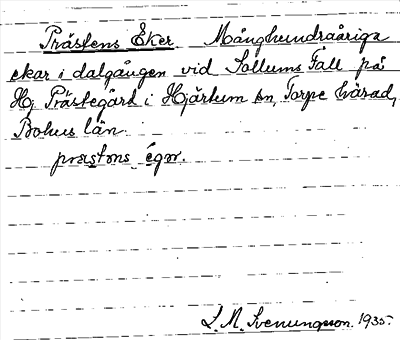 Prästens Eker Månghundraåriga
ekar i dalgången vid Sollums Fall på
Hj. Prästegård i Hjärtum sn, Torpe härad,
Bohus län.
præstəns égər.
L. M. Svenungsson. 1935.